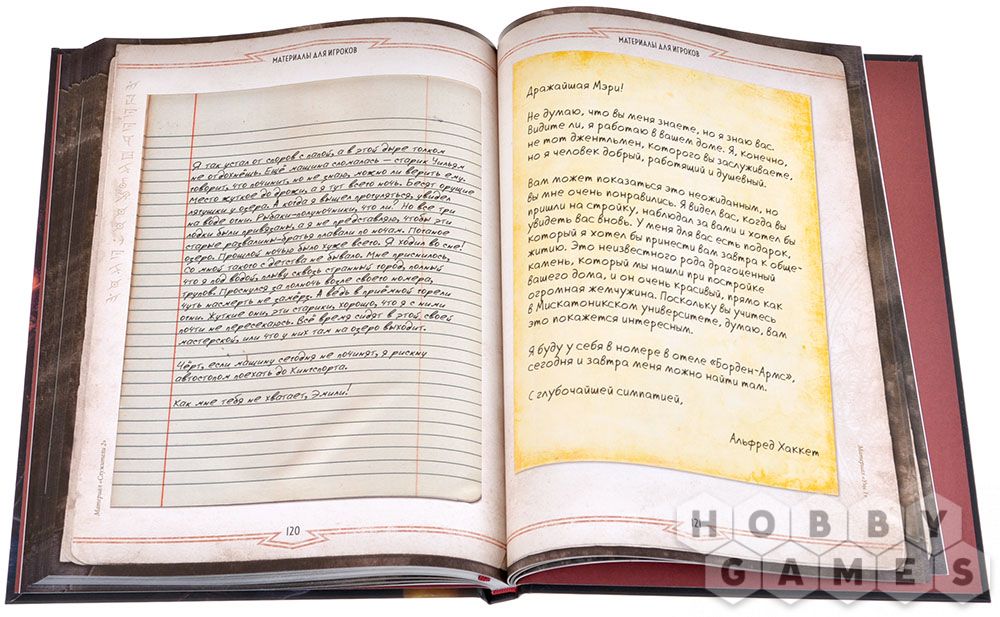 МАТЕРИАЛЫ ДЛЯ ИГРОКОВ
Я так устал от споров с папой, а в этой дыре толком
не отдохнёшь. Ещё машина сломалась — старик Уильям
говорит, что починит, но не знаю, можно ли верить ему.
Место жуткое до дрожи, а я тут всего ночь. Бесят орущие
лягушки у озера. А когда я вышел прогуляться, увидел
на воде огни. Рыбаки-полуночники, что ли? Но все три
лодки были привязаны, а я не представляю, чтобы эти
старые развалины-братья плавали по ночам. Поганое
озеро. Прошлой ночью было хуже всего. Я ходил во сне!
Со мной такого с детства не бывало. Мне приснилось,
что я под водой, плыву сквозь странный город, полный
трупов. Проснулся за полночь возле своего номера,
чуть насмерть не замёрз. А ведь в приёмной горели
огни. Жуткие они, эти старики, хорошо, что я с ними
почти не пересекаюсь. Всё время сидят в этой своей
мастерской, или что у них там на озеро выходит.
Чёрт, если машину сегодня не починят, я рискну
автостопом поехать до Кингспорта.
Как мне тебя не хватает, Эмили!
Материал «Служители 2»
120
МАТЕРИАЛЫ ДЛЯ ИГРОКОВ
Дражайшая Мэри!
Не думаю, что вы меня знаете, но я знаю вас.
Видите ли, я работаю в вашем доме. Я, конечно,
не тот джентльмен, которого вы заслуживаете,
но я человек добрый, работящий и душевный.
Вам может показаться это неожиданным, но
вы мне очень понравились. Я видел вас, когда вы
пришли на стройку, наблюдал за вами и хотел бы
увидеть вас вновь. У меня для вас есть подарок,
который я хотел бы принести вам завтра к обще-
житию. Это неизвестного рода драгоценный
камень, который мы нашли при постройке
вашего дома, и он очень красивый, прямо как
огромная жемчужина. Поскольку вы учитесь
в Мискатоникском университете, думаю, вам
это покажется интересным.
Я буду у себя в номере в отеле «Борден-Армс»,
сегодня и завтра меня можно найти там.
С глубочайшей симпатией,
Альфред Хаккет
Материал
121
HOBBY
GAMES